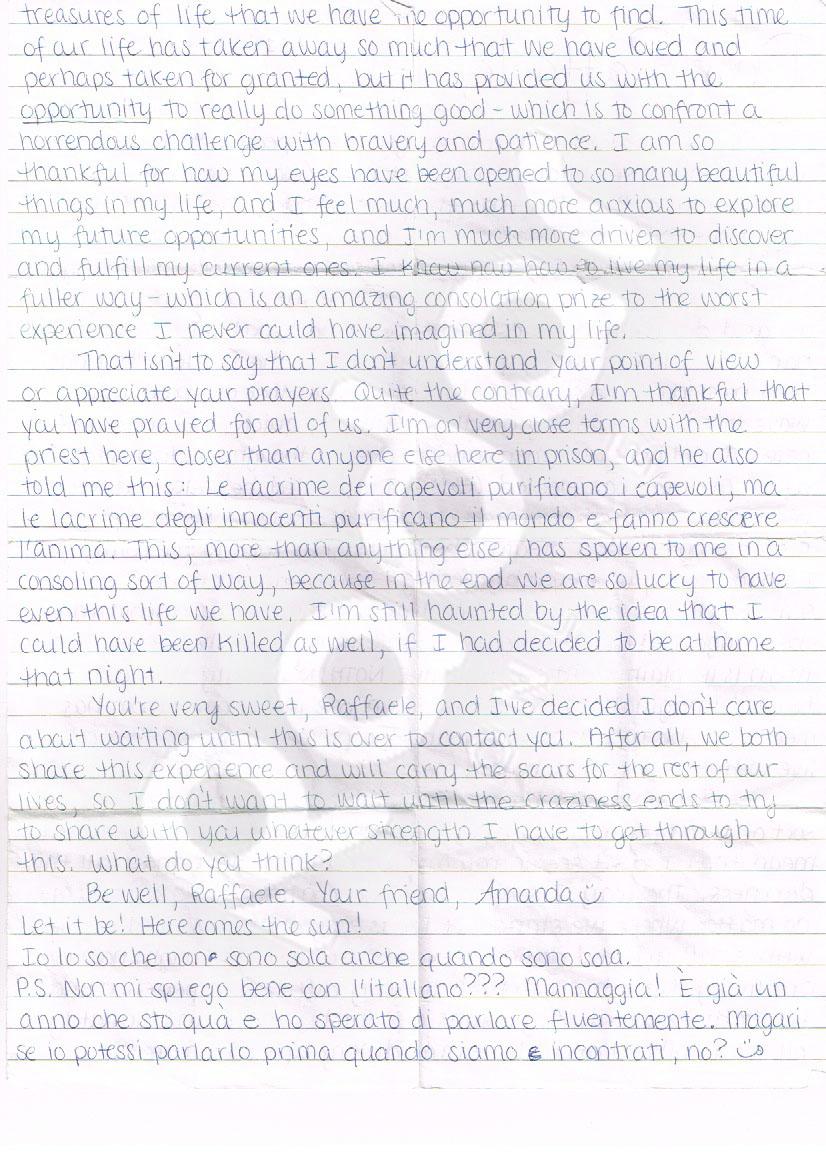 treasures of life that we have the opportunity to find. This time
of our life has taken away so much that we have loved and
perhaps taken for granted, but it has provided us with the
opportunity to really do something good - which is to confront a
horrendous challenge with bravery and patience. I am so
thankful for how my eyes have been opened to so many beautiful
things in my life, and I feel much, much more anxious to explore
my future opportunities, and I'm much more driven to discover
and fulfill my current ones. I know now how to live my life in a
fuller way - which is an amazing consolation prize to the worst
experience I never could have imagined in my life.
That isn't to say that I don't understand your point of view
or appreciate your prayers. Quite the contrary, I'm thankful that
you have prayed for all of us. I'm on very close terms with the
priest here, closer than anyone else here in prison, and he also
told me this: Le lacrime dei capevoli purificano i capevoli, ma
le lacrime degli innocenti purificano il mondo e fanno crescere
l'anima. This, more than anything else, has spoken to me in a
consoling sort of way, because in the end we are so lucky to have
even this life we have. I'm still haunted by the idea that I
could have been killed as well, if I had decided to be at home
that night.
You're very sweet, Raffaele, and I've decided I don't care
about waiting until this is over to contact you. After all, we both
share this experience and will carry the scars for the rest of our
lives, so I don't want to wait until the craziness ends to try
to share with you whatever strength I have to get through
this. What do you think?
Be well, Raffaele. Your friend, Amanda
Let it be! Here comes the sun!
Io lo so che non sono sola anche quando sono sola.
P.S. Non mi spiego bene con l'italiano??? Mannaggia! È già un
anno che sto quà e ho sperato di parlare fluentemente. Magari
se io potessi parlarlo prima quando siamo incontrati, no?